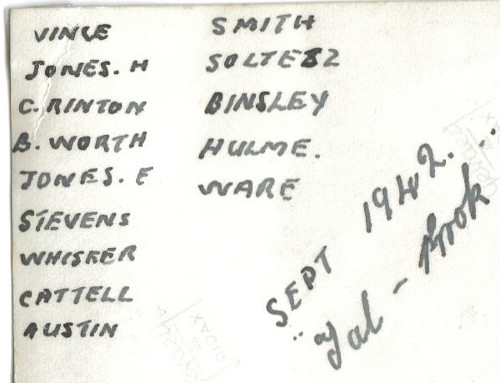 VINCE
JONES. H
C. RINTON
B. WORTH
JONES. E
STEVENS
WHISKER
CATTELL
AUSTIN
SMITH
SOLTESZ
BINSLEY
HULME.
WARE
SEPT 1942...
Jal - Brook